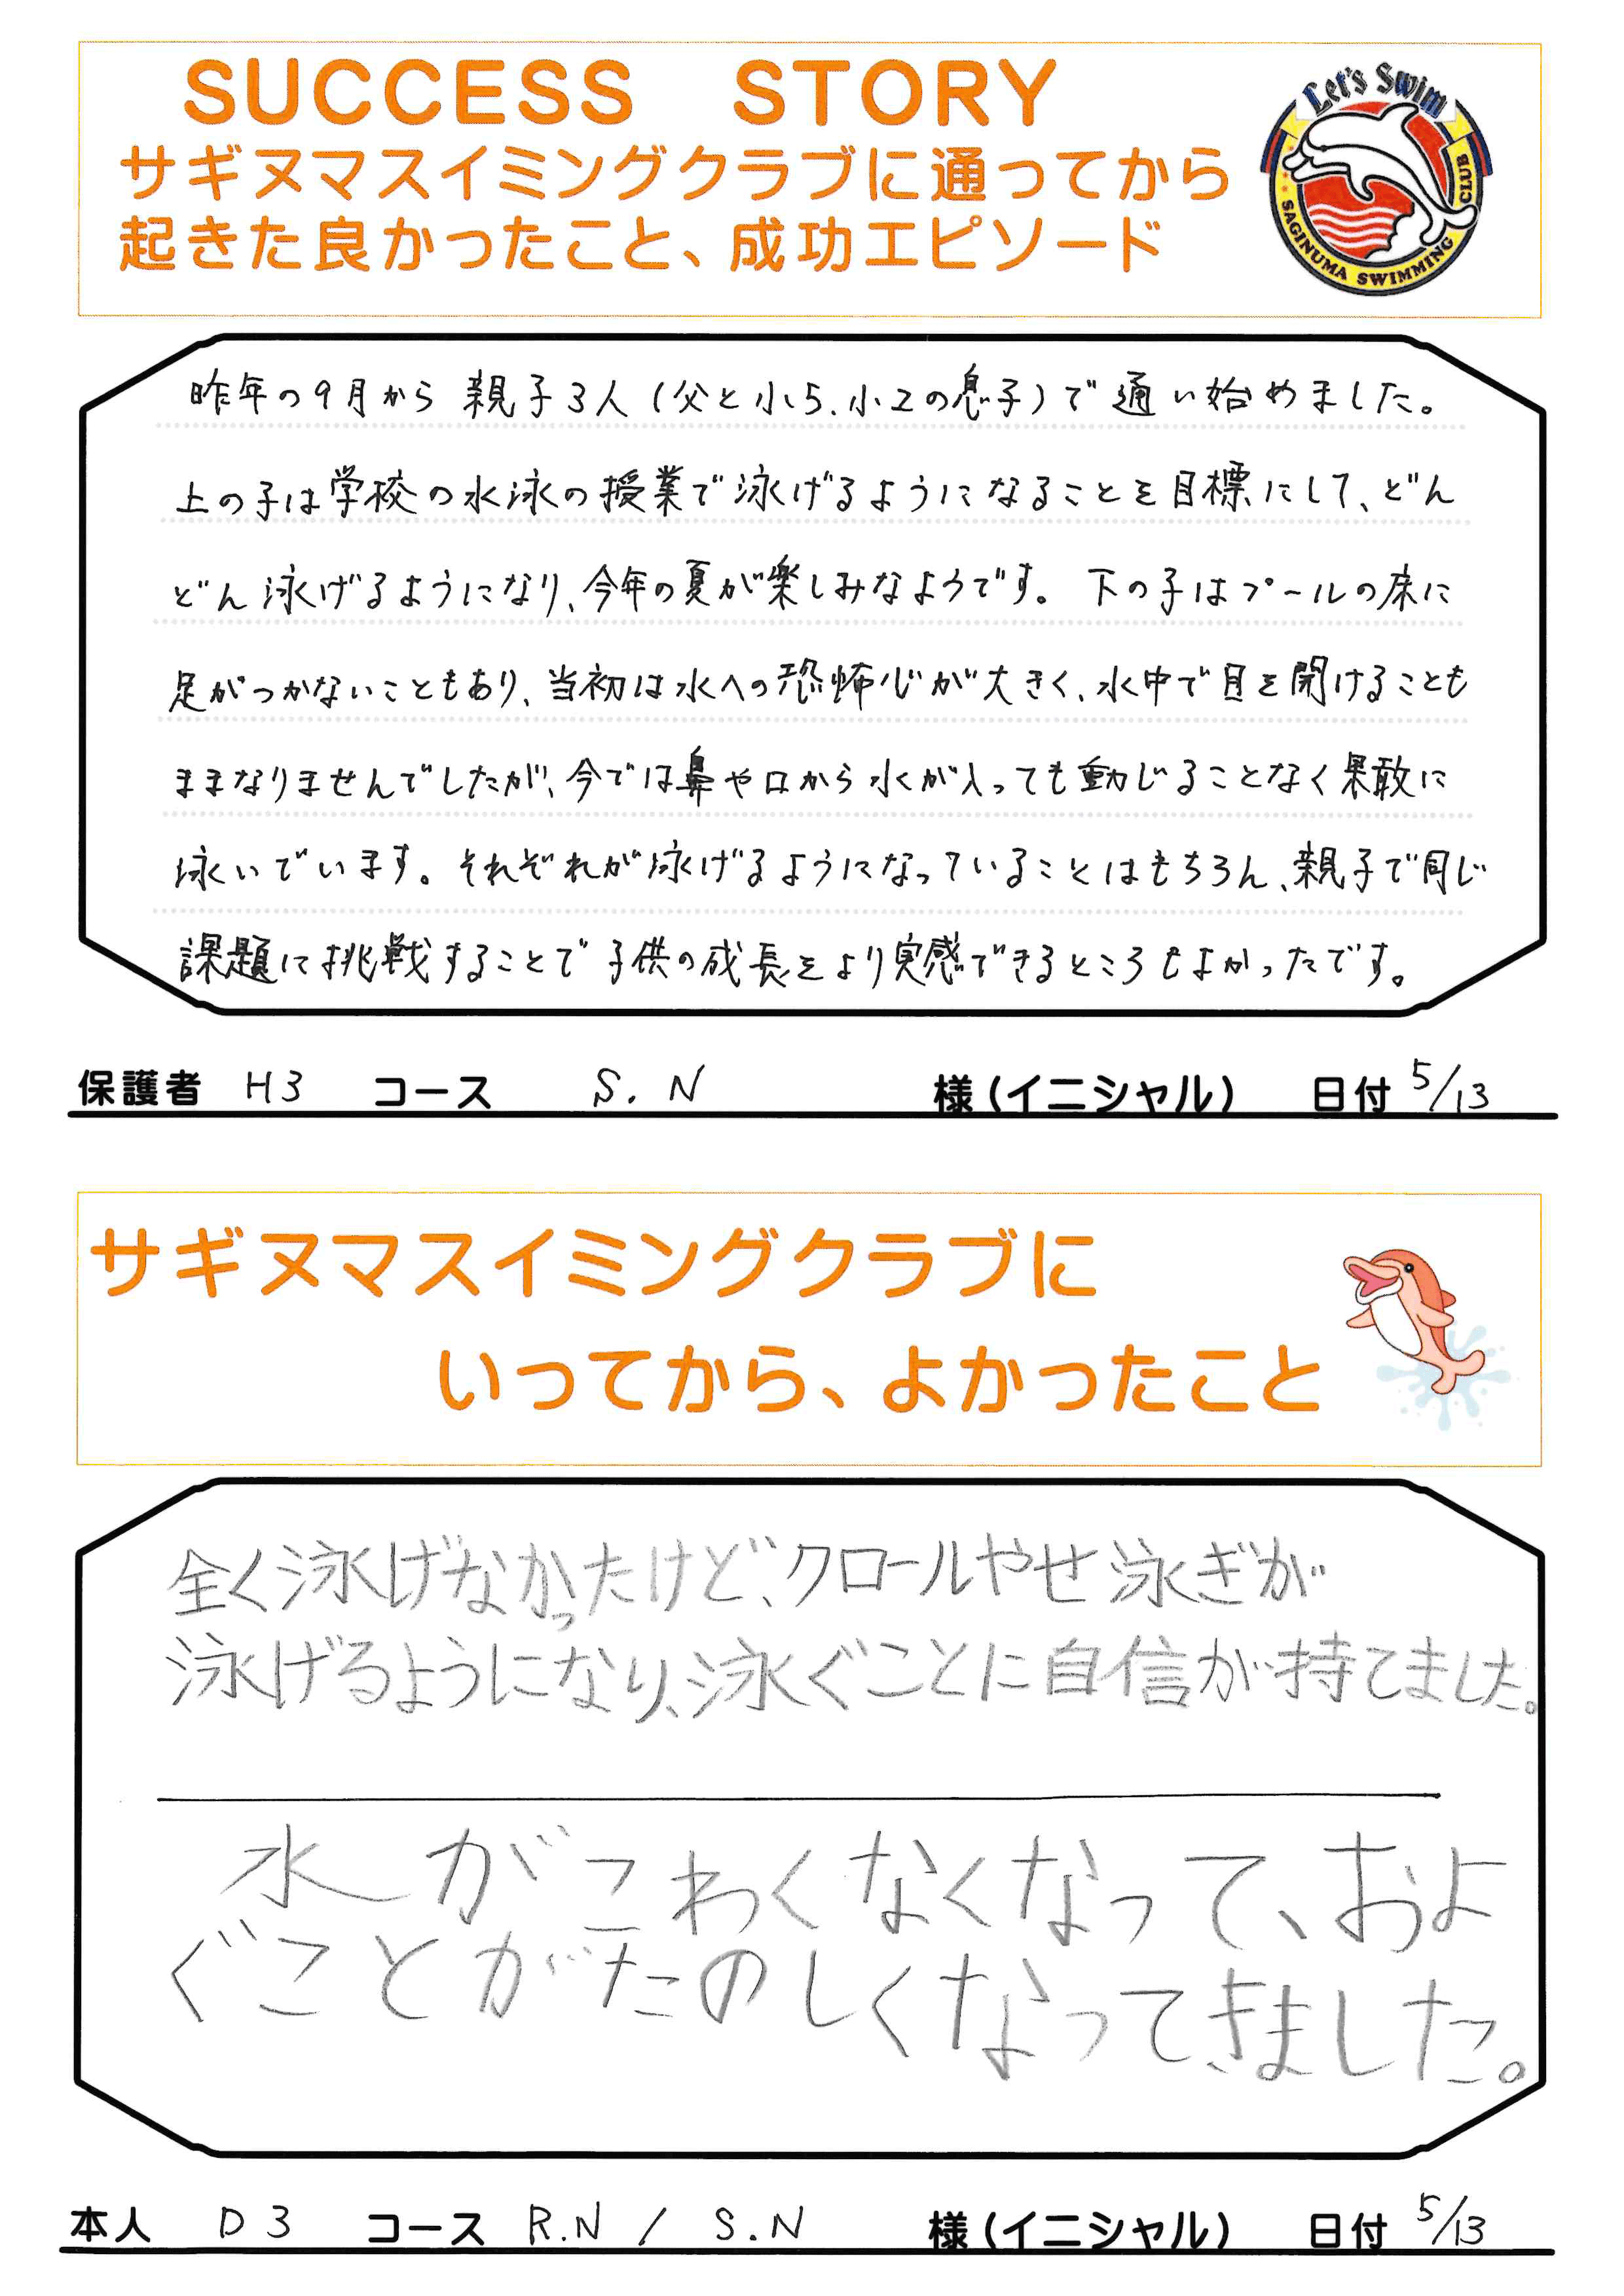 SUCCESS STORY
サギヌマスイミングクラブに通ってから
起きた良かったこと、成功エピソード
Let's Swim
SAGINUMA SWIMMING CLUB
昨年の9月から 親子3人(父と小5、小2の息子)で通い始めました。
上の子は学校の水泳の授業で泳げるようになることを目標にして、どん
どん泳げるようになり、今年の夏が楽しみなようです。 下の子はプールの床に
足がつかないこともあり、当初は水への恐怖心が大きく、水中で目を開けることも
ままなりませんでしたが、今では鼻や口から水が入っても動じることなく果敢に
泳いでいます。それぞれが泳げるようになっていることはもちろん、親子で同じ
課題に挑戦することで子供の成長をより実感できるところもよかったです。
保護者 H3 コース S.N 様(イニシャル) 日付 5/13
サギヌマスイミングクラブに
いってから、よかったこと
全く泳げなかったけど、クロールやせ泳ぎが
泳げるようになり、泳ぐことに自信が持てました。
水がこわくなくなって、およ
ぐことがたのしくなってきました。
本人 D3 コース R.N / S.N 様(イニシャル) 日付 5/13